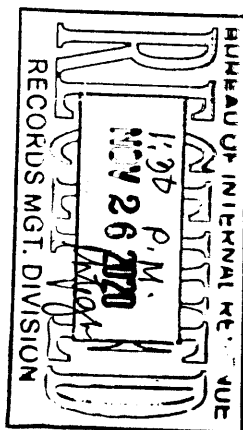 BUREAU OF INTERNAL RE VUE
RECEIVED
1:20 P.M.
NOV 26 2020
RECORDS MGT. DIVISION